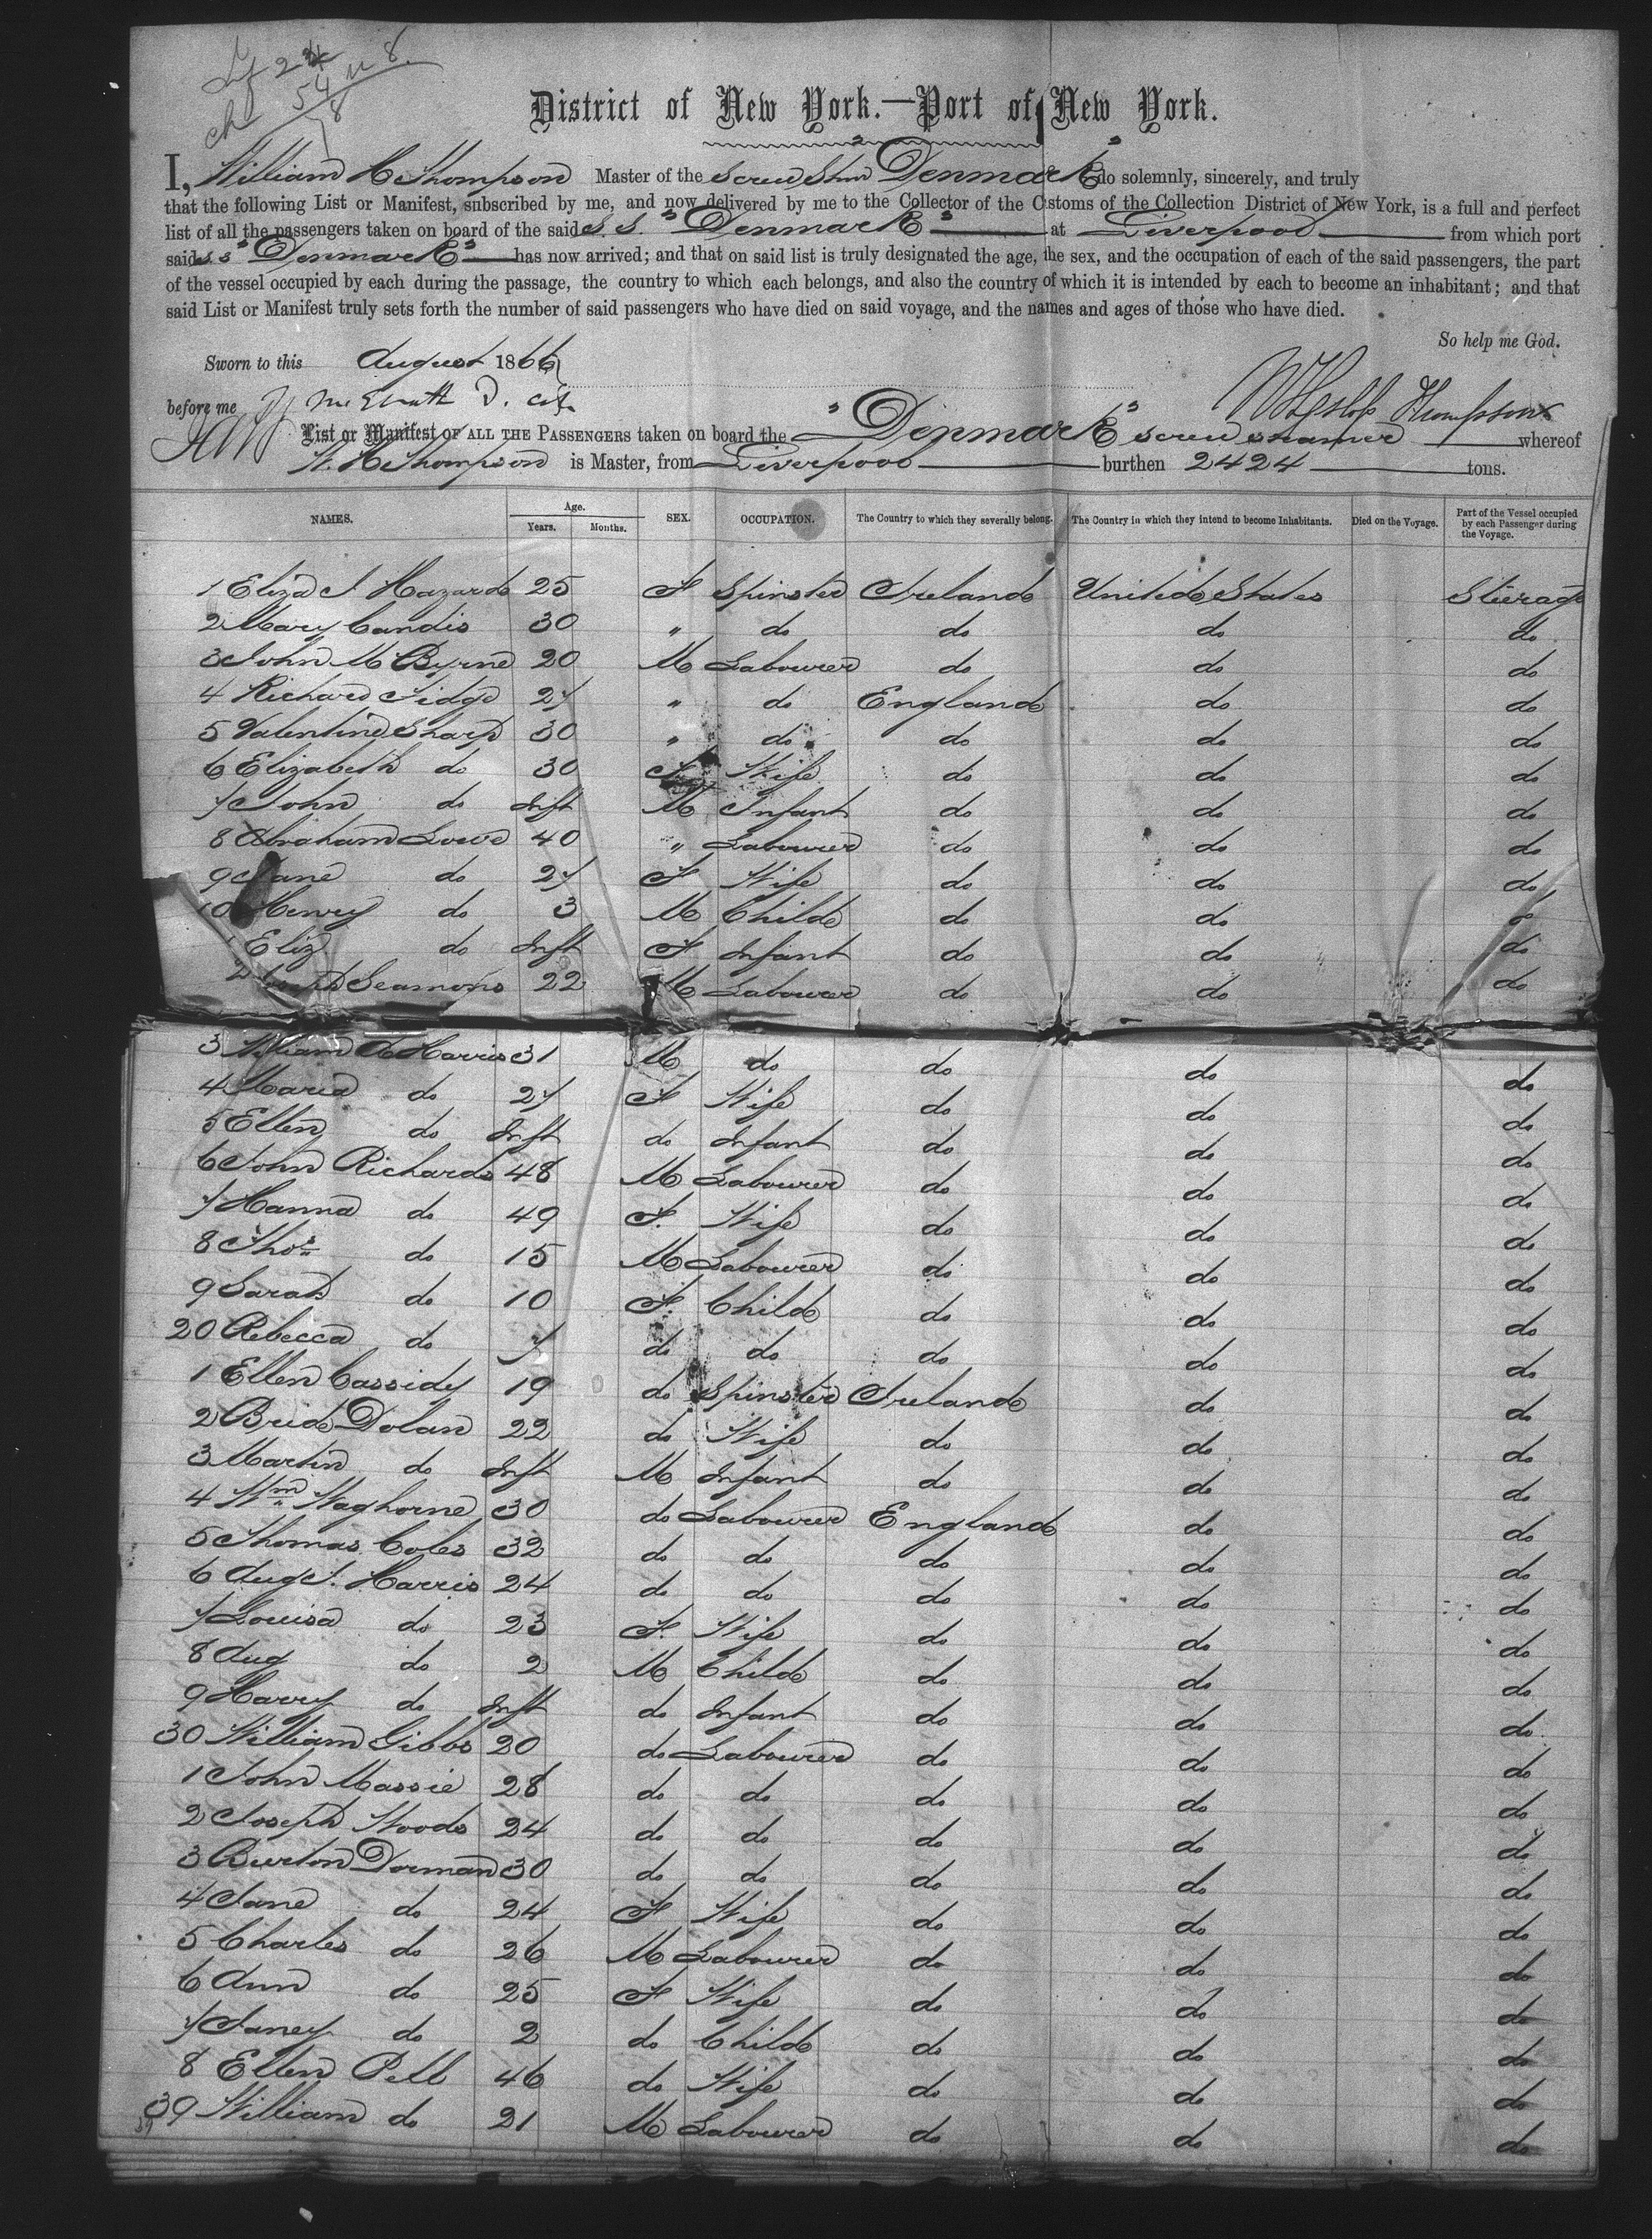 District of New York.—Port of New York.
I, William H Thompson Master of the Screw Stmr "Denmark" do solemnly, sincerely, and truly
that the following List or Manifest, subscribed by me, and now delivered by me to the Collector of the Customs of the Collection District of New York, is a full and perfect
list of all the passengers taken on board of the said S. S. "Denmark" at Liverpool from which port
said S. S "Denmark" has now arrived; and that on said list is truly designated the age, the sex, and the occupation of each of the said passengers, the part
of the vessel occupied by each during the passage, the country to which each belongs, and also the country of which it is intended by each to become an inhabitant; and that
said List or Manifest truly sets forth the number of said passengers who have died on said voyage, and the names and ages of those who have died.
So help me God.
Sworn to this August 1866
before me
List or Manifest OF ALL THE PASSENGERS taken on board the "Denmark" screw steamer whereof
W. H Thompson is Master, from Liverpool burthen 2424 tons.
NAMES. Age. Years. Months. SEX. OCCUPATION. The Country to which they severally belong. The Country in which they intend to become Inhabitants. Died on the Voyage. Part of the Vessel occupied by each Passenger during the Voyage.
1 Eliza J Hazard 25 F Spinster Ireland United States Steerage
2 Mary Candis 30 " do do do do
3 John McByrne 20 M Labourer do do do
4 Richard Fidge 27 " do England do do
5 Valentine Sharp 30 " do do do do
6 Elizabeth do 30 F Wife do do do
7 John do Inft M Infant do do do
8 Abraham Lowe 40 " Labourer do do do
9 Jane do 27 F Wife do do do
10 Henry do 3 M Child do do do
1 Eliz do Inft F Infant do do do
2 Joseph Seamons 22 M Labourer do do do
3 William H Harris 31 M do do do do
4 Maria do 27 F Wife do do do
5 Ellen do Inft do Infant do do do
6 John Richards 48 M Labourer do do do
7 Hanna do 49 F. Wife do do do
8 Thos do 15 M Labourer do do do
9 Sarah do 10 F. Child do do do
20 Rebecca do 7 do do do do do
1 Ellen Cassidy 19 do Spinster Ireland do do
2 Brid Dolan 22 do Wife do do do
3 Martin do Inft M Infant do do do
4 Wm Waghorne 30 do Labourer England do do
5 Thomas Coles 32 do do do do do
6 Aug J. Harris 24 do do do do do
7 Louisa do 23 F. Wife do do do
8 Aug do 2 M Child do do do
9 Harry do Inft do Infant do do do
30 William Gibbs 20 do Labourer do do do
1 John Massie 28 do do do do do
2 Joseph Woods 24 do do do do do
3 Burton Dorman 30 do do do do do
4 Jane do 24 F Wife do do do
5 Charles do 26 M Labourer do do do
6 Ann do 25 F Wife do do do
7 Janey do 2 do Child do do do
8 Ellen Pell 46 do Wife do do do
39 William do 21 M Labourer do do do